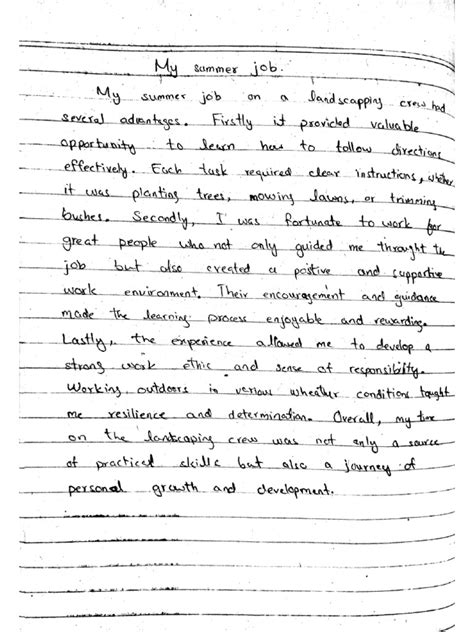 My summer job.
My summer job on a landscapping crew had
several advantages. Firstly it provided valuable
opportunity to learn how to follow directions
effectively. Each task required clear instructions, whether
it was planting trees, mowing lawns, or trimming
bushes. Secondly, I was fortunate to work for
great people who not only guided me throught the
job but also created a postive and supportive
work environment. Their encouragement and guidance
made the learning process enjoyable and rewarding.
Lastly, the experience allowed me to develop a
strong work ethic and sense of responsibility.
Working outdoors in various wheather conditions taught
me resilience and determination. Overall, my time
on the lantscaping crew was not only a source
of practical skills but also a journey of
personal growth and development.